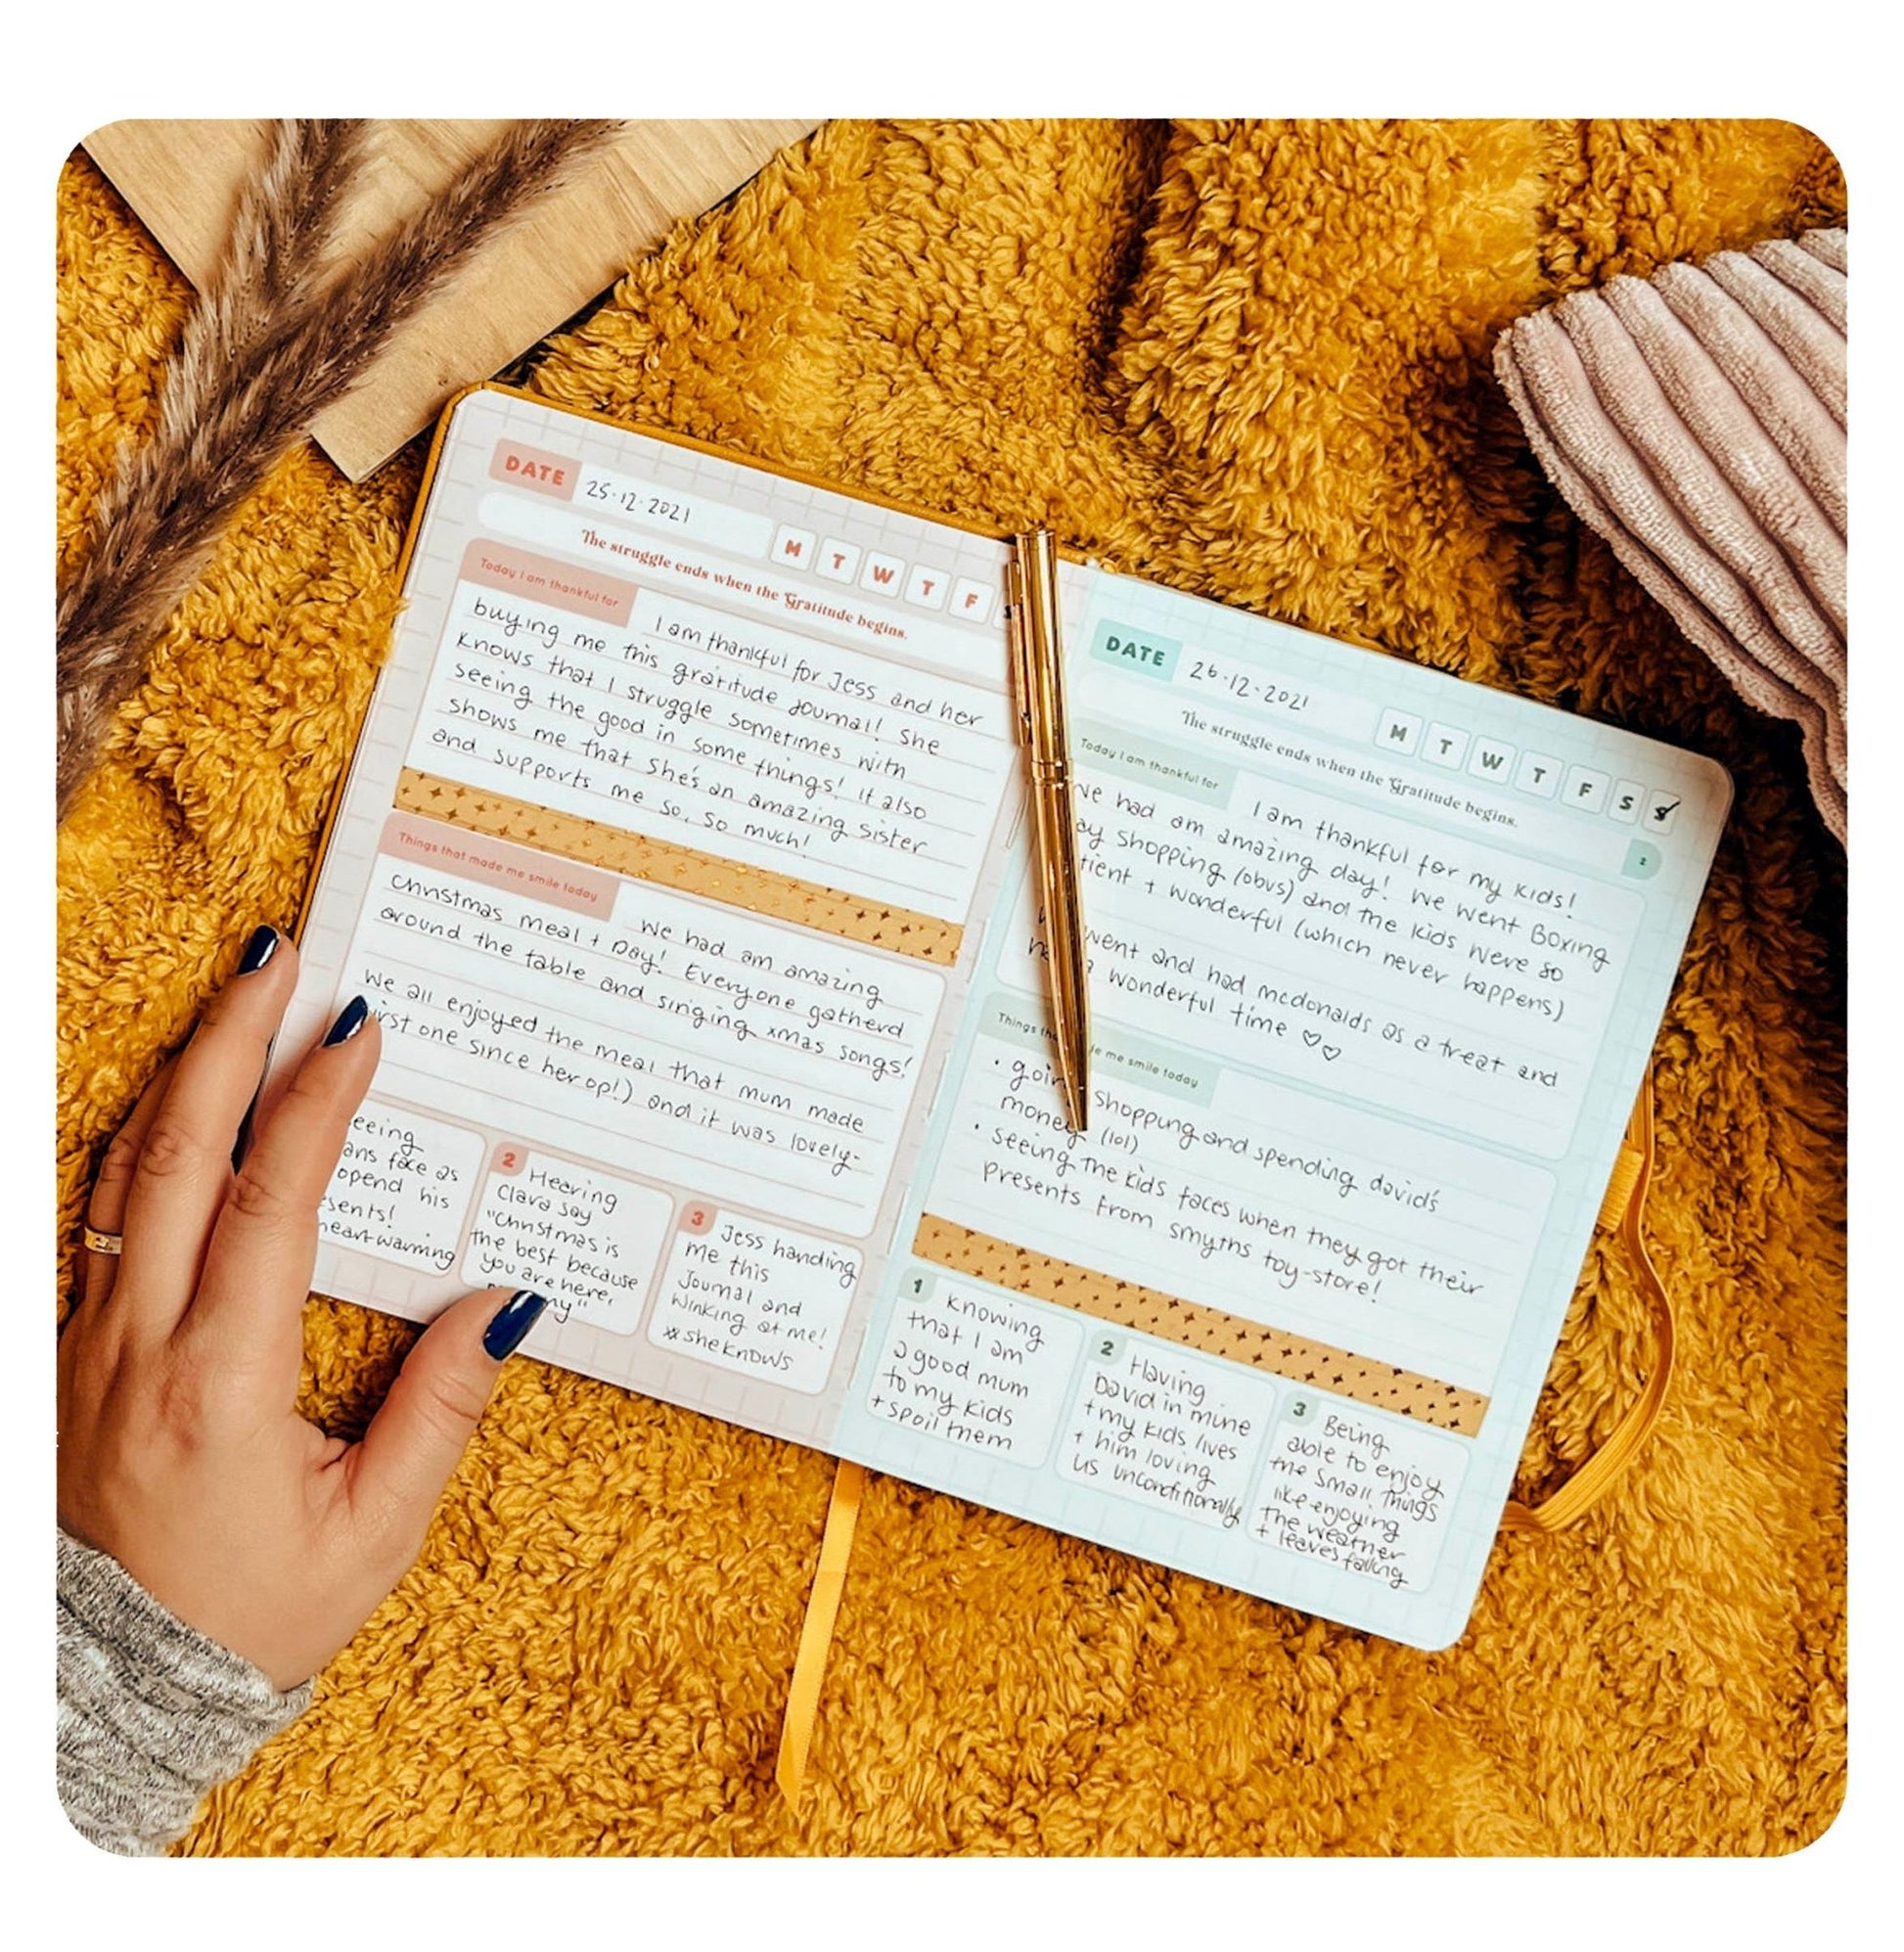 DATE 25.12.2021
M T W T F
The struggle ends when the Gratitude begins.
Today I am thankful for
I am thankful for Jess and her
buying me this gratitude Journal! She
knows that I struggle sometimes with
seeing the good in some things! It also
shows me that she's an amazing sister
and supports me so, so much!
Things that made me smile today
We had am amazing
Christmas meal + Day! Everyone gatherd
around the table and singing xmas songs!
We all enjoyed the meal that mum made
first one since her op!) and it was lovely.
face as
opend his
2 Heering
Clara say
"Christmas is
the best because
you are here,
3 Jess handing
me this
Journal and
winking at me!
she knows
DATE 26.12.2021
M T W T F S S
The struggle ends when the Gratitude begins.
2
Today I am thankful for
I am thankful for my kids!
We had am amazing day! We went Boxing
shopping (obvs) and the kids were so
+ wonderful (which never happens)
went and had mcdonalds as a treat and
a wonderful time ♡♡
Things me smile today
• going shopping and spending david's
money (lol)
• seeing the kids faces when they got their
presents from smyths toy-store!
1 Knowing
that I am
a good mum
to my kids
+ spoil them
2 Having
David in mine
+ my kids lives
+ him loving
us unconditionally
3 Being
able to enjoy
the small things
like enjoying
the weather
+ leaves falling